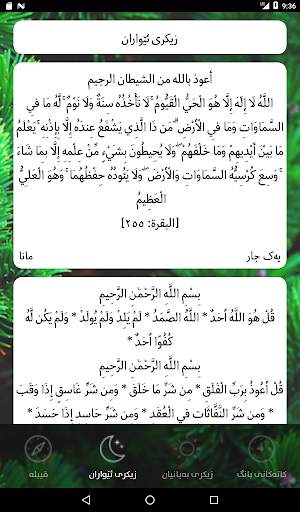 9:36
زیکری ئێواران
أعوذ بالله من الشيطان الرجيم
اللَّهُ لَا إِلَٰهَ إِلَّا هُوَ الْحَيُّ الْقَيُّومُ ۚ لَا تَأْخُذُهُ سِنَةٌ وَلَا نَوْمٌ ۚ لَّهُ مَا فِي
السَّمَاوَاتِ وَمَا فِي الْأَرْضِ ۗ مَن ذَا الَّذِي يَشْفَعُ عِندَهُ إِلَّا بِإِذْنِهِ ۚ يَعْلَمُ
مَا بَيْنَ أَيْدِيهِمْ وَمَا خَلْفَهُمْ ۖ وَلَا يُحِيطُونَ بِشَيْءٍ مِّنْ عِلْمِهِ إِلَّا بِمَا شَاءَ
ۚ وَسِعَ كُرْسِيُّهُ السَّمَاوَاتِ وَالْأَرْضَ ۖ وَلَا يَئُودُهُ حِفْظُهُمَا ۚ وَهُوَ الْعَلِيُّ
الْعَظِيمُ
[البقرة: ٢٥٥]
یەک جار
مانا
بِسْمِ اللَّهِ الرَّحْمَٰنِ الرَّحِيمِ
قُلْ هُوَ اللَّهُ أَحَدٌ * اللَّهُ الصَّمَدُ * لَمْ يَلِدْ وَلَمْ يُولَدْ * وَلَمْ يَكُن لَّهُ
كُفُوًا أَحَدٌ *
بِسْمِ اللَّهِ الرَّحْمَٰنِ الرَّحِيمِ
قُلْ أَعُوذُ بِرَبِّ الْفَلَقِ * مِن شَرِّ مَا خَلَقَ * وَمِن شَرِّ غَاسِقٍ إِذَا وَقَبَ
* وَمِن شَرِّ النَّفَّاثَاتِ فِي الْعُقَدِ * وَمِن شَرِّ حَاسِدٍ إِذَا حَسَدَ *
کاتەکانی بانگ
زیکری بەیانیان
زیکری ئێواران
قیبلە